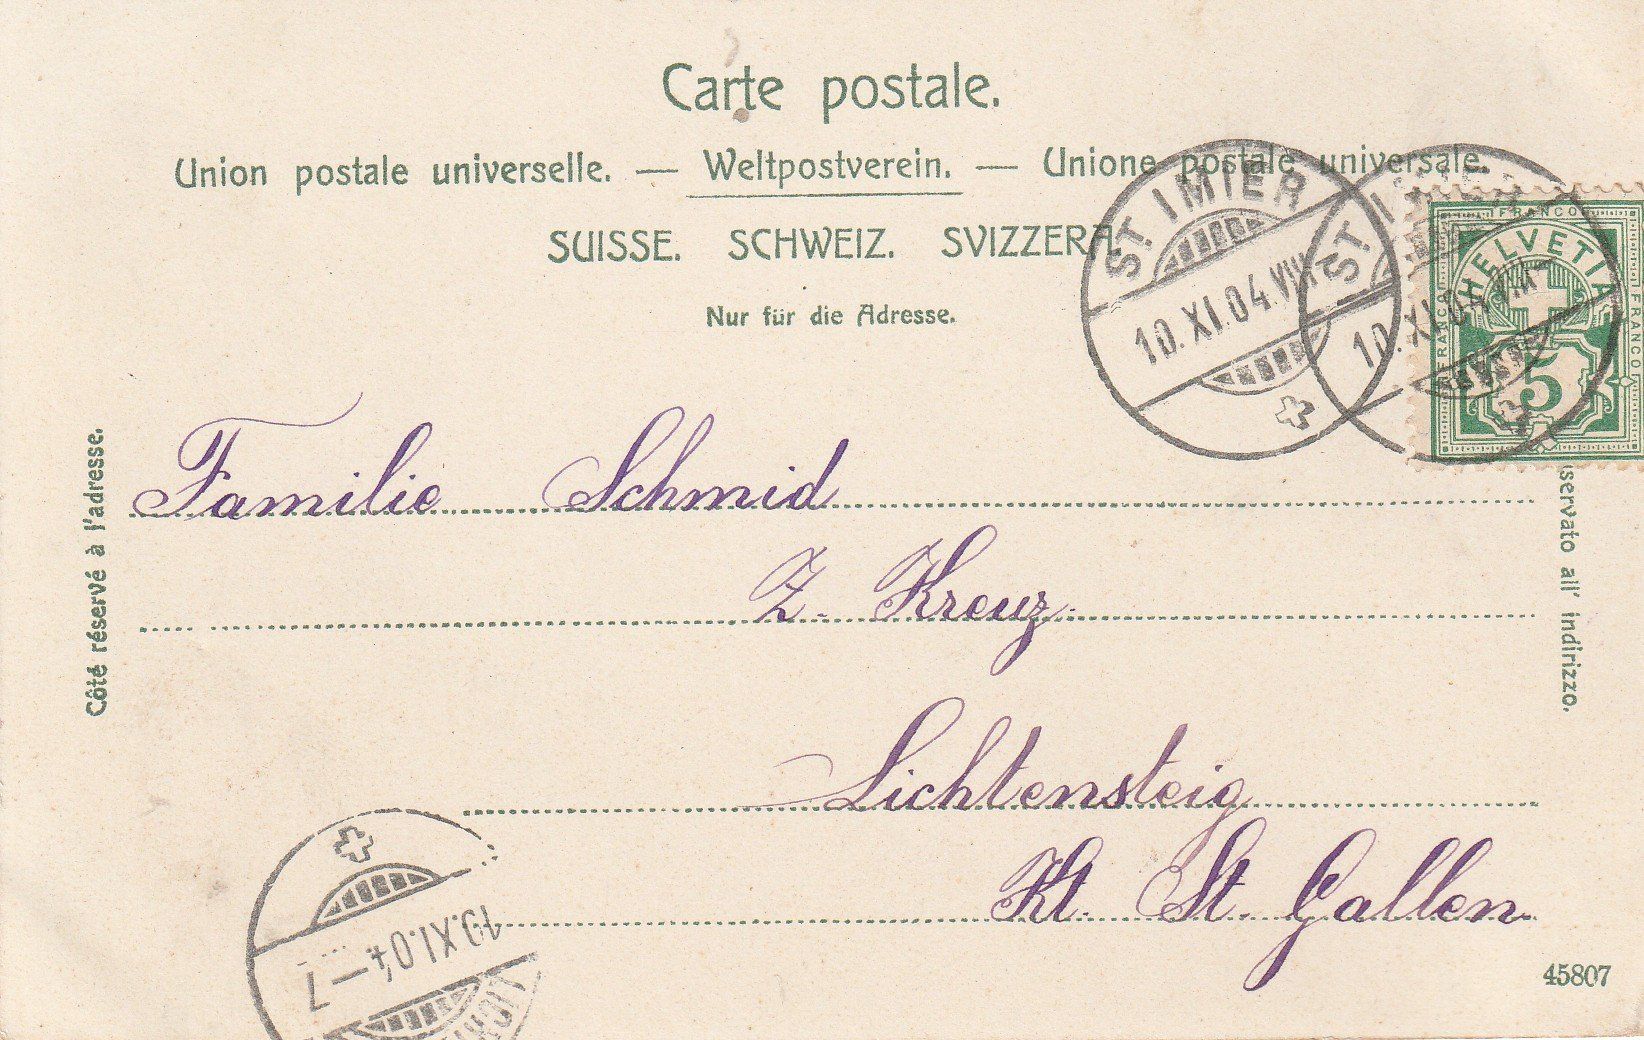 Carte postale.
Union postale universelle. — Weltpostverein. — Unione postale universale.
SUISSE. SCHWEIZ. SVIZZERA
Nur für die Adresse.
ST IMIER
10.XI.04.VIII
ST IMIER
10.XI.04.VIII
FRANCO
HELVETIA
FRANCO
FRANCO
5
Côté réservé à l'adresse.
all' indirizzo.
Familie Schmid
Z. Kreuz.
Lichtensteig
Kt. St. Gallen
10.XI.04.–7
45807